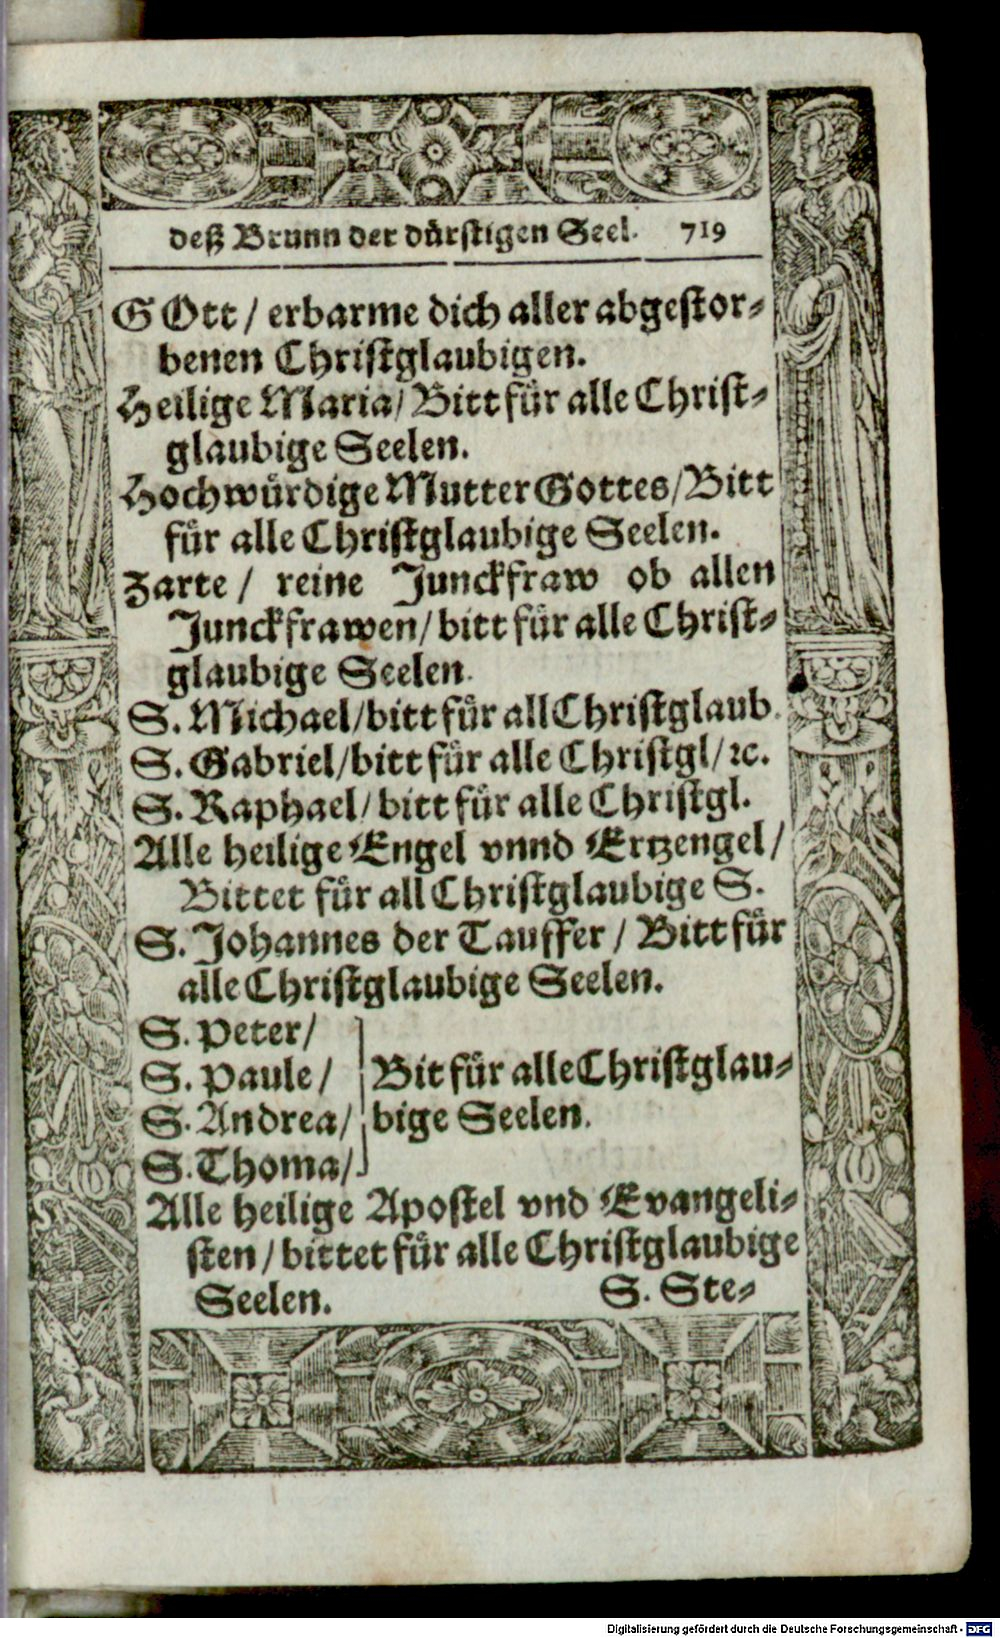 deß Brunn der dürstigen Seel. 719
GOtt / erbarme dich aller abgestor-
benen Christglaubigen.
Heilige Maria / Bitt für alle Christ-
glaubige Seelen.
Hochwürdige Mutter Gottes / Bitt
für alle Christglaubige Seelen.
Zarte / reine Junckfraw ob allen
Junckfrawen / bitt für alle Christ-
glaubige Seelen.
S. Michael / bitt für all Christglaub.
S. Gabriel / bitt für alle Christgl / ꝛc.
S. Raphael / bitt für alle Christgl.
Alle heilige Engel vnnd Ertzengel /
Bittet für all Christglaubige S.
S. Johannes der Tauffer / Bitt für
alle Christglaubige Seelen.
S. Peter /
S. Paule / Bit für alle Christglau-
S. Andrea / bige Seelen.
S. Thoma /
Alle heilige Apostel vnd Evangeli-
sten / bittet für alle Christglaubige
Seelen. S. Ste-
Digitalisierung gefördert durch die Deutsche Forschungsgemeinschaft - DFG